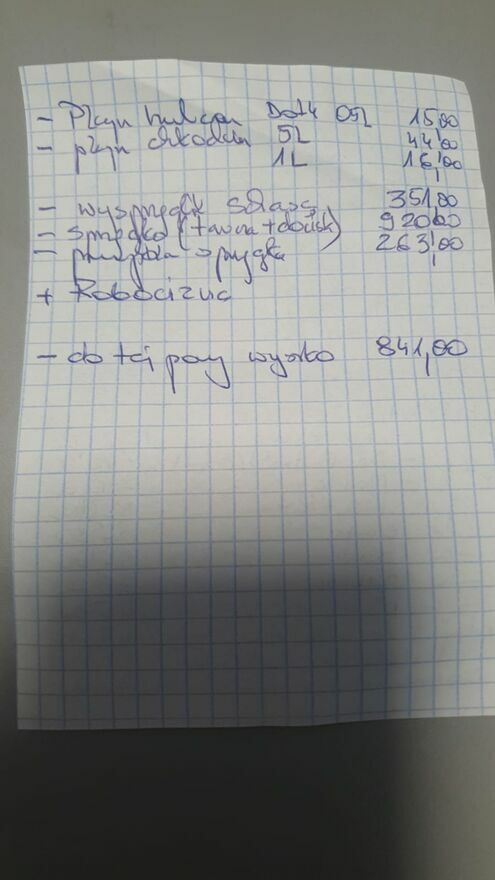 - Płyn hulcan Dot4 05L 15,00
- płyn chłodn 5L 44,00
1L 16,00
- wysprzęglik 351,00
- sprzęgło (tarcza + docisk) 920,00
- sprzęgła 263,00
+ Robocizna
- do tej pory wyszło 841,00